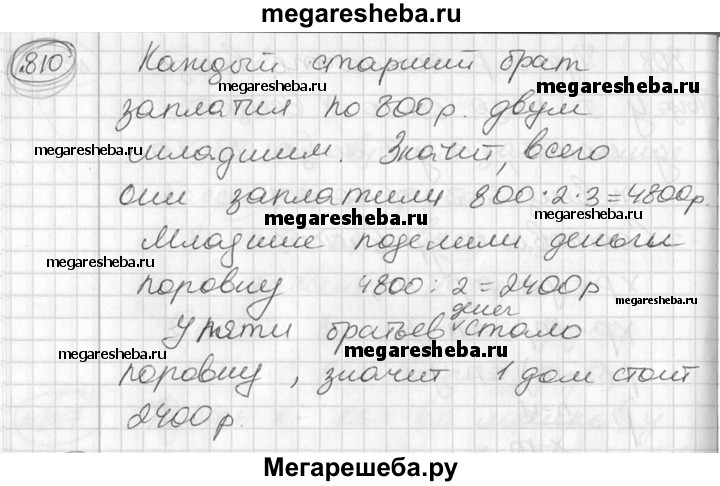 megaresheba.ru
810
Каждый старший брат
megaresheba.ru
заплатил по 800 р. двум
megaresheba.ru
младшим. Значит, всего
они заплатили 800·2·3=4800р.
megaresheba.ru
megaresheba.ru
Младшие поделили деньги
megaresheba.ru
поровну 4800:2=2400р
megaresheba.ru
денег
У пяти братьев стало
megaresheba.ru
megaresheba.ru
поровну, значит 1 дом стоит
2400р.
Мегарешеба.ру